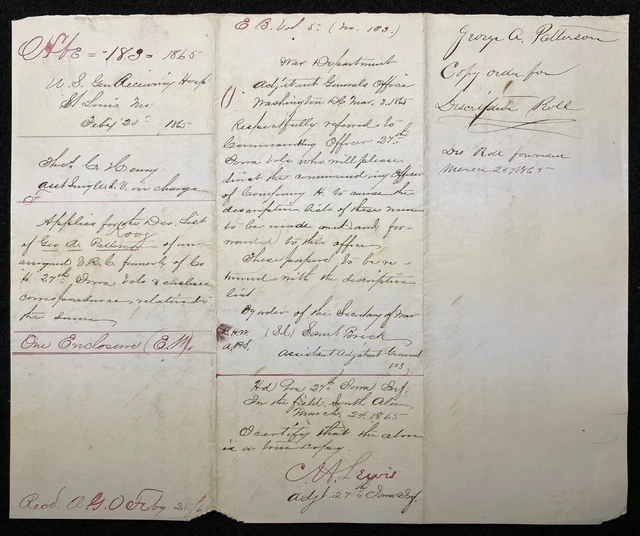 183 = 1865
U.S. Gen Receiving Hosp
St Louis Mo
Feby 20th 1865
Thos C Henry
Asst Surg U.S.V. in charge
Applies for the Des. List
of Geo A. Patterson of un-
assigned V.R.C. formerly of Co
H. 27th Iowa Vols & encloses
correspondence relative to
the same
One Enclosure (E.M.
Recd. A.G.O Feby
E B. Vol 5. (No. 183.)
War Department
Adjutant Generals Office
Washington DC Mar. 3, 1865
Respectfully referred to
Commanding Officer 27th
Iowa Vols who will please
direct the commanding Officer
of Company H. to cause the
descriptive lists of these men
to be made out and for-
warded to this office
These papers to be re-
turned with the descriptive
list
By order of the Secretary of War
Saml Breck
Assistant Adjutant General
103
Hd Qrs 27th Iowa Inf.
In the field, South Ala
March, 24. 1865
I certify that the above
is a true copy.
Lewis
Adjt. 27th Iowa Inf
George A. Patterson
Copy order for
Descriptive Roll
Des Roll forwarded
March 25th 1865